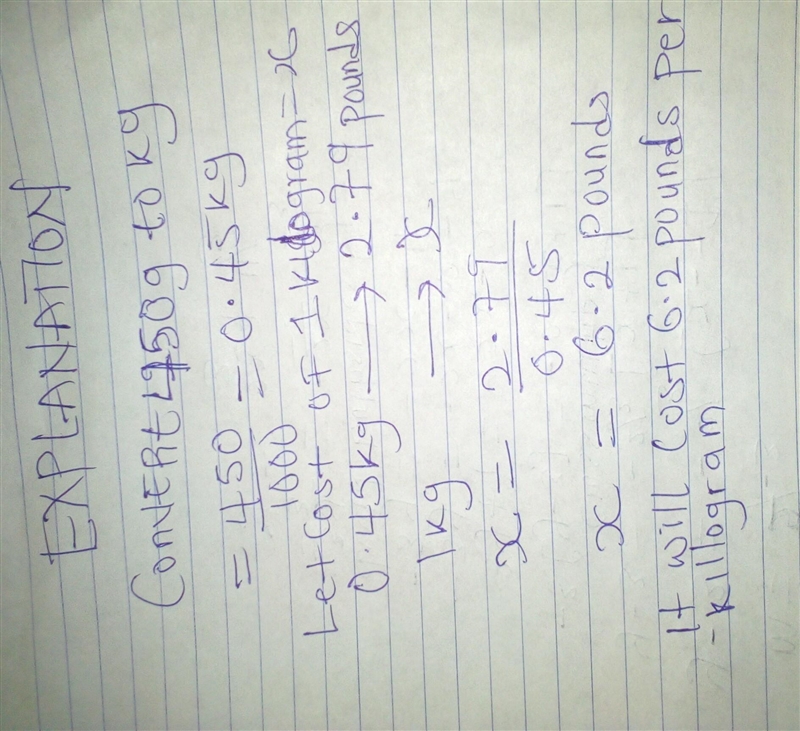 EXPLANATION
Convert 450g to kg
= 450/1000 = 0.45kg
Let cost of 1 kilogram = x
0.45kg → 2.79 pounds
1kg → x
x = 2.79/0.45
x = 6.2 pounds
It will cost 6.2 pounds per
-killogram